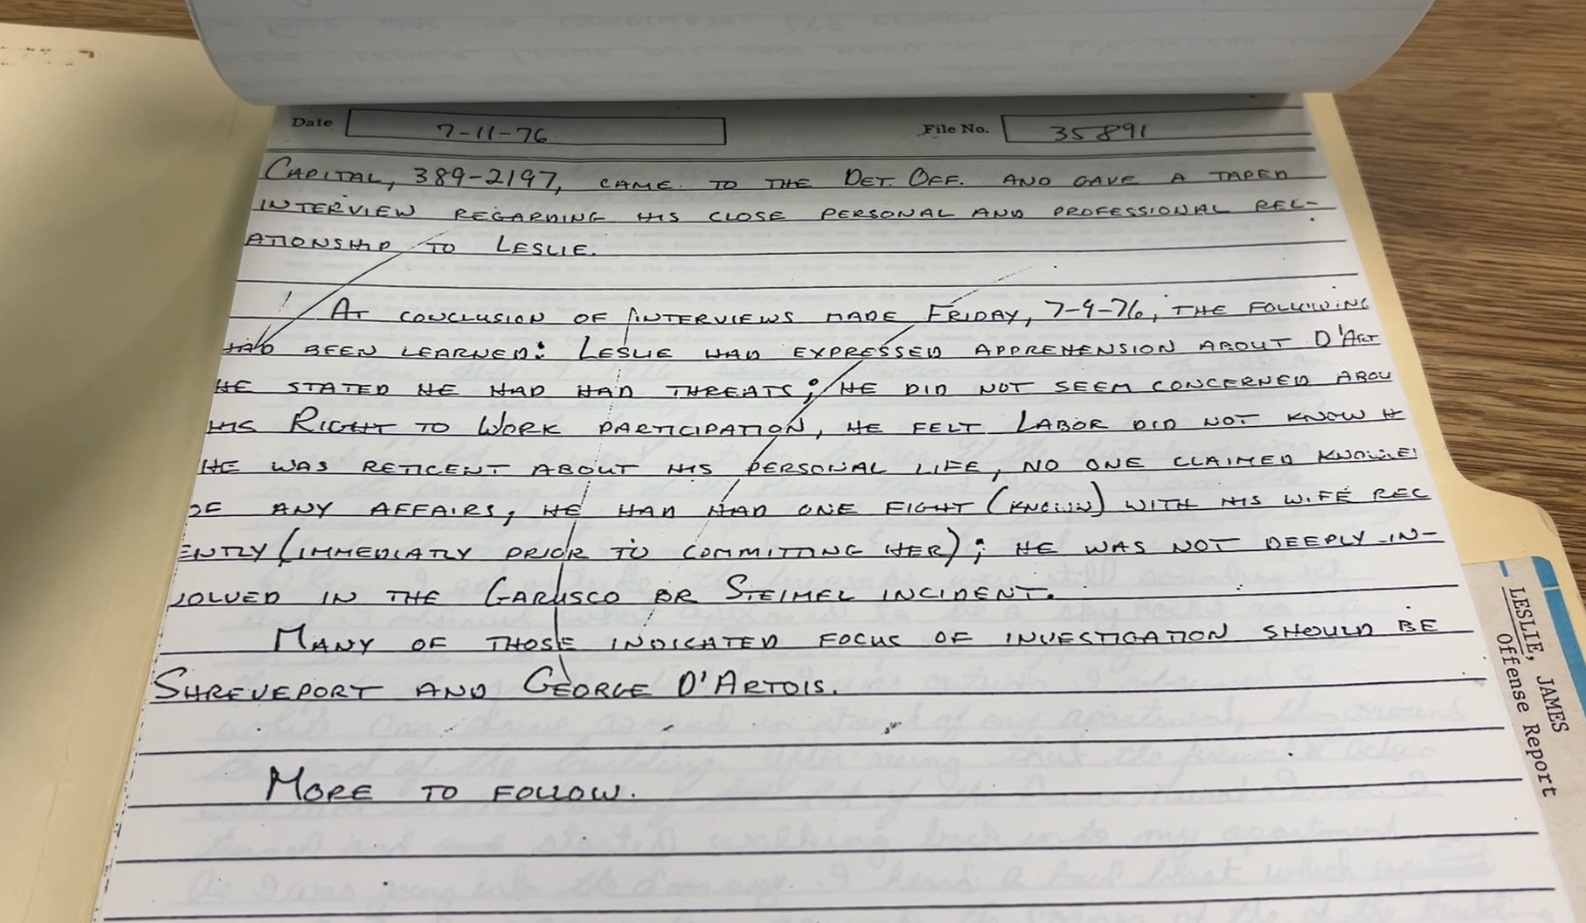 Date 7-11-76 File No. 35891
CAPITAL, 389-2197, CAME TO THE DET. OFF. AND GAVE A TAPED
INTERVIEW REGARDING HIS CLOSE PERSONAL AND PROFESSIONAL REL-
ATIONSHIP TO LESLIE.
AT CONCLUSION OF INTERVIEWS MADE FRIDAY, 7-9-76, THE FOLLOWING
HAD BEEN LEARNED: LESLIE HAD EXPRESSED APPREHENSION ABOUT D'ART
HE STATED HE HAD HAD THREATS; HE DID NOT SEEM CONCERNED ABOU
HIS RIGHT TO WORK PARTICIPATION, HE FELT LABOR DID NOT KNOW H
HE WAS RETICENT ABOUT HIS PERSONAL LIFE, NO ONE CLAIMED KNOWLE
OF ANY AFFAIRS; HE HAD HAD ONE FIGHT (KNOWN) WITH HIS WIFE REC
ENTLY (IMMEDIATLY PRIOR TO COMMITTING HER); HE WAS NOT DEEPLY IN-
VOLVED IN THE GARUSCO OR STEIMEL INCIDENT.
MANY OF THOSE INDICATED FOCUS OF INVESTIGATION SHOULD BE
SHREVEPORT AND GEORGE D'ARTOIS.
MORE TO FOLLOW.
LESLIE, JAMES
Offense Report